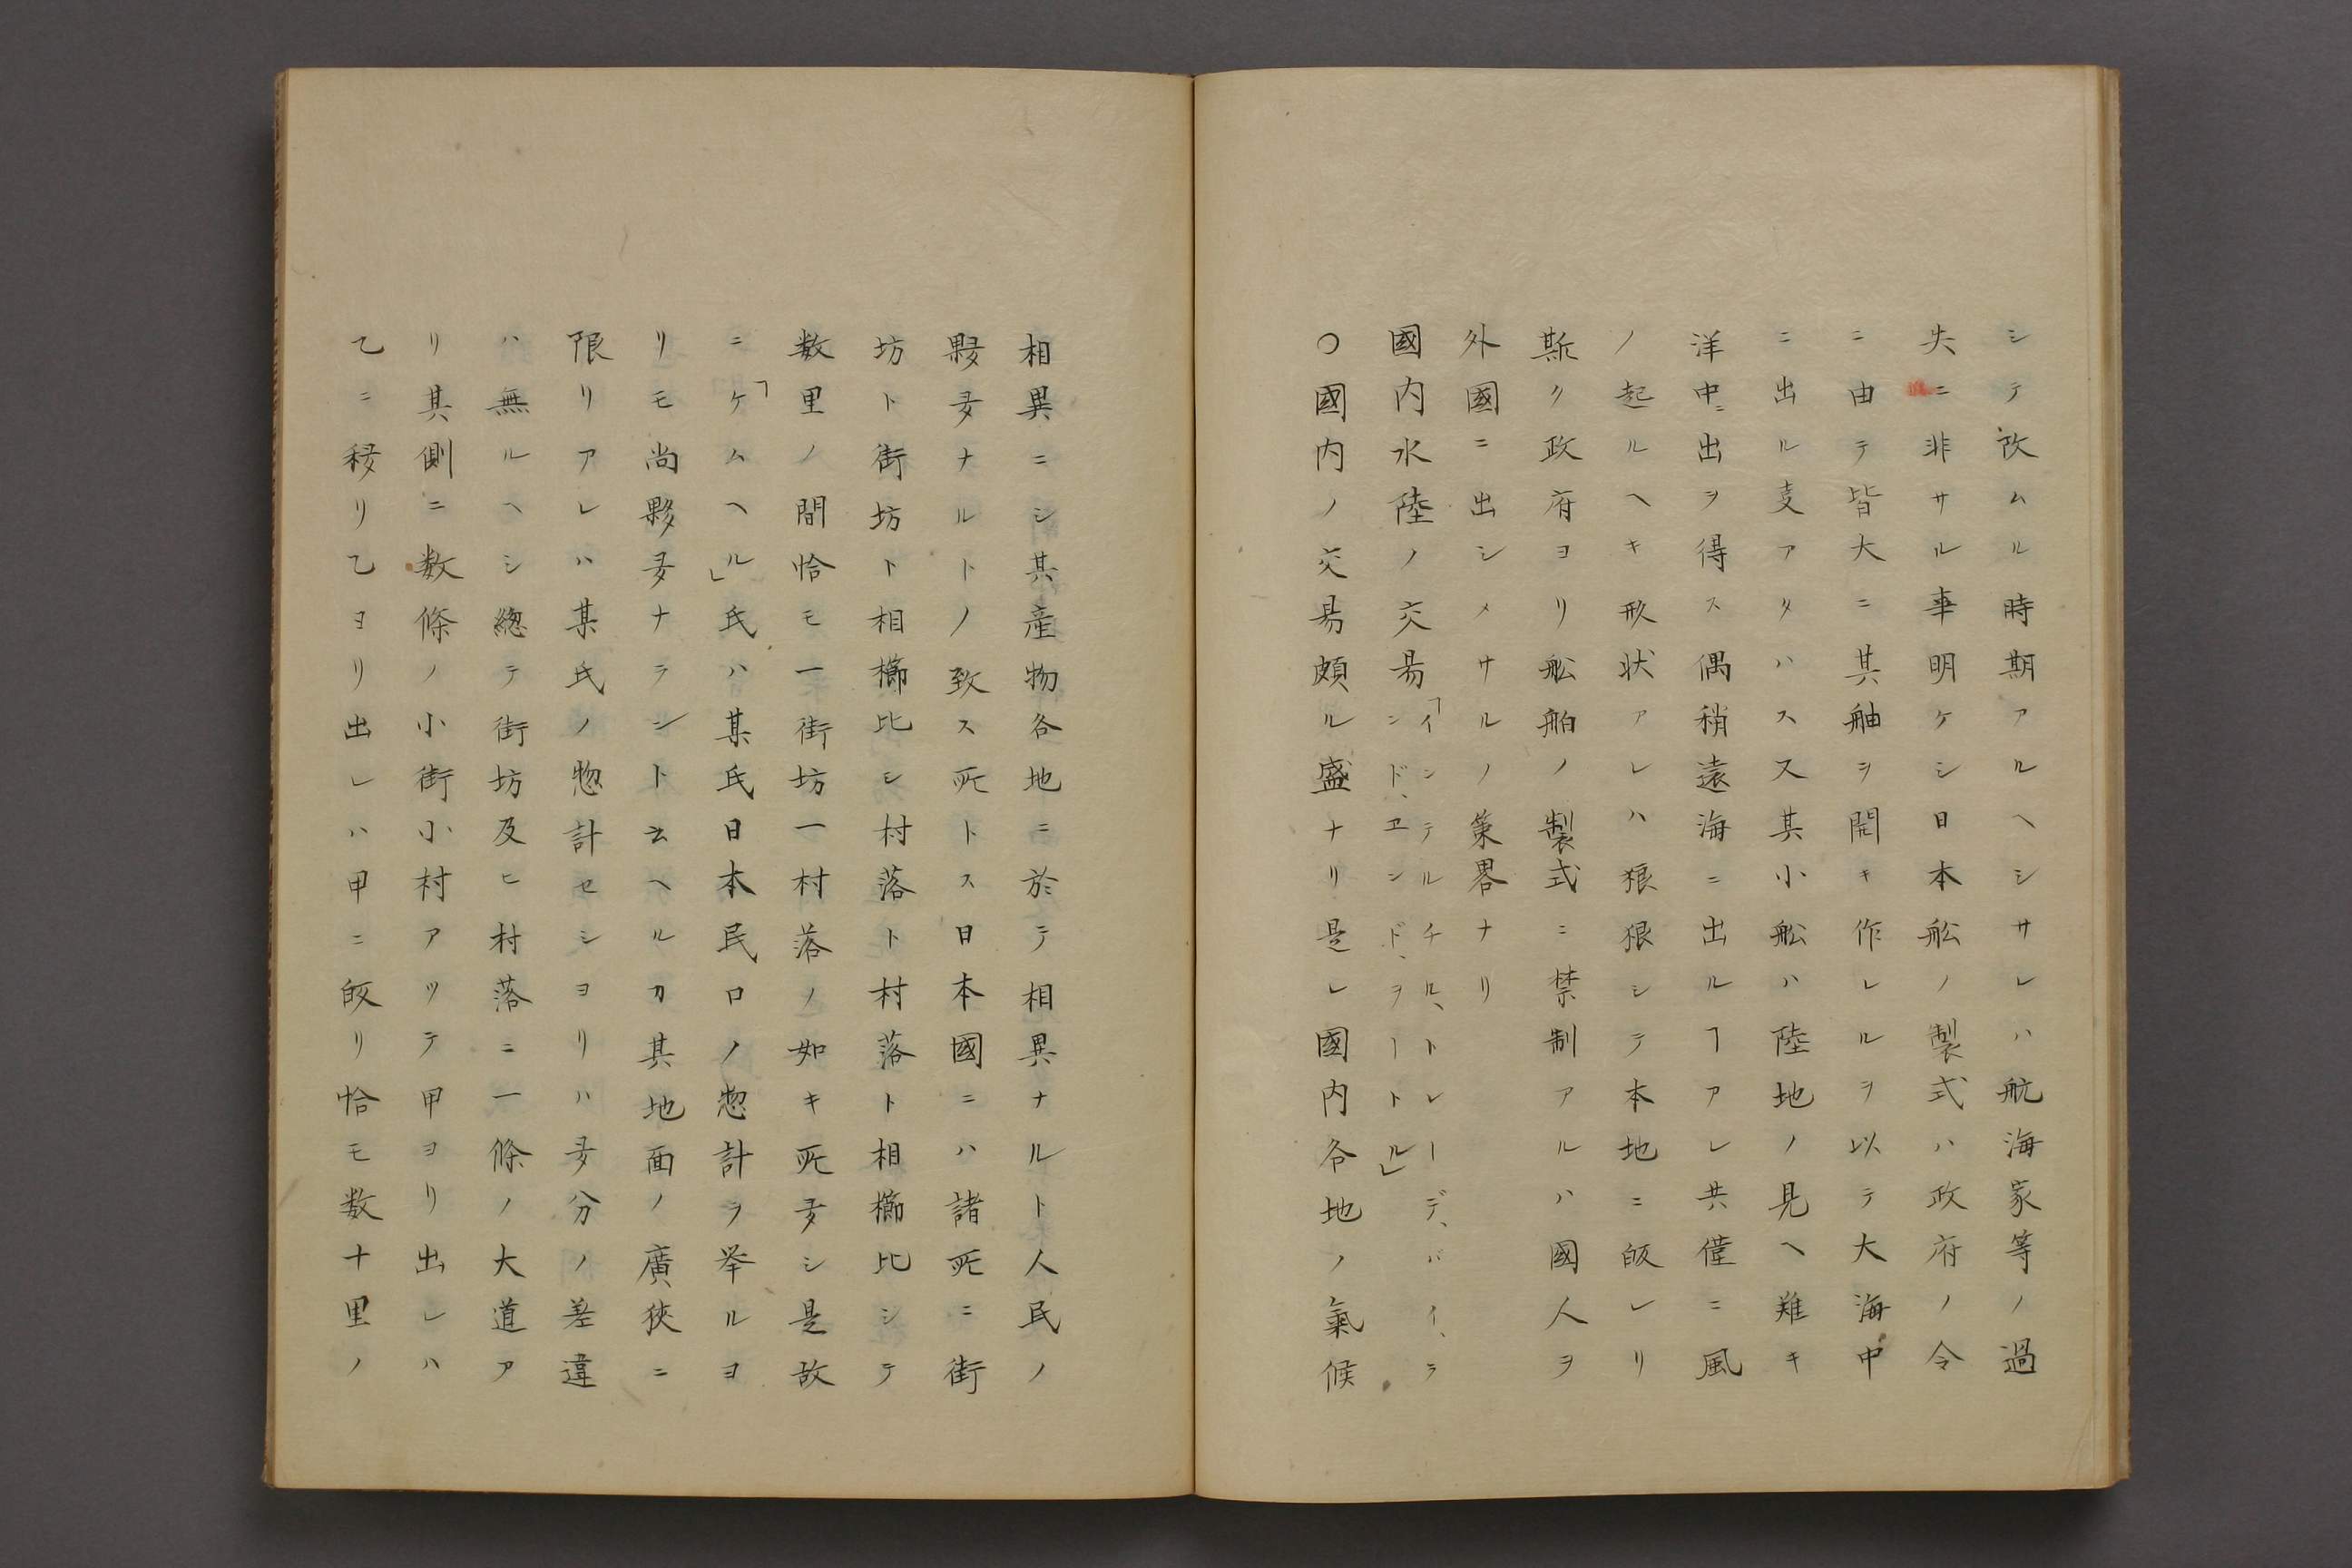 シテ改ムル時期アルヘシサレハ航海家等ノ過
失ニ非サル事明ケシ日本舩ノ製式ハ政府ノ令
ニ由テ皆大ニ其舳ヲ開キ作レルヲ以テ大海中
ニ出ル支アタハスス又其小舩ハ陸地ノ見ヘ難キ
洋中ニ出ヲ得ス偶稍遠海ニ出ルヿアレ共僅ニ風
ノ起ルヘキ形状アレハ狼狽シテ本地ニ皈レリ
斯ク政府ヨリ舩舶ノ製式ニ禁制アルハ國人ヲ
外國ニ出シメサルノ策畧ナリ
國内水陸ノ交昜「インテルチル、トレーデ、バイ、ラ
ンド、ヱンド、ヲートル」
○國内ノ交昜頗ル盛ナリ是レ國内各地ノ氣候
相異ニシ其産物各地ニ於テ相異ナルト人民ノ
夥多ナルトノ致ス所トス日本國ニハ諸所ニ街
坊ト街坊ト相櫛比シ村落ト村落ト相櫛比シテ
数里ノ間恰モ一街坊一村落ノ如キ所多シ是故
ニ「ケムヘル」氏ハ某氏日本民口ノ惣計ヲ举ルヨ
リモ尚夥多ナラント云ヘルカ其地面ノ廣狹ニ
限リアレハ某氏ノ惣計セシヨリハ多分ノ差違
ハ無ルヘシ總テ街坊及ヒ村落ニ一條ノ大道ア
リ其側ニ数條ノ小街小村アツテ甲ヨリ出レハ
乙ニ移リ乙ヨリ出レハ甲ニ皈リ恰モ数十里ノ